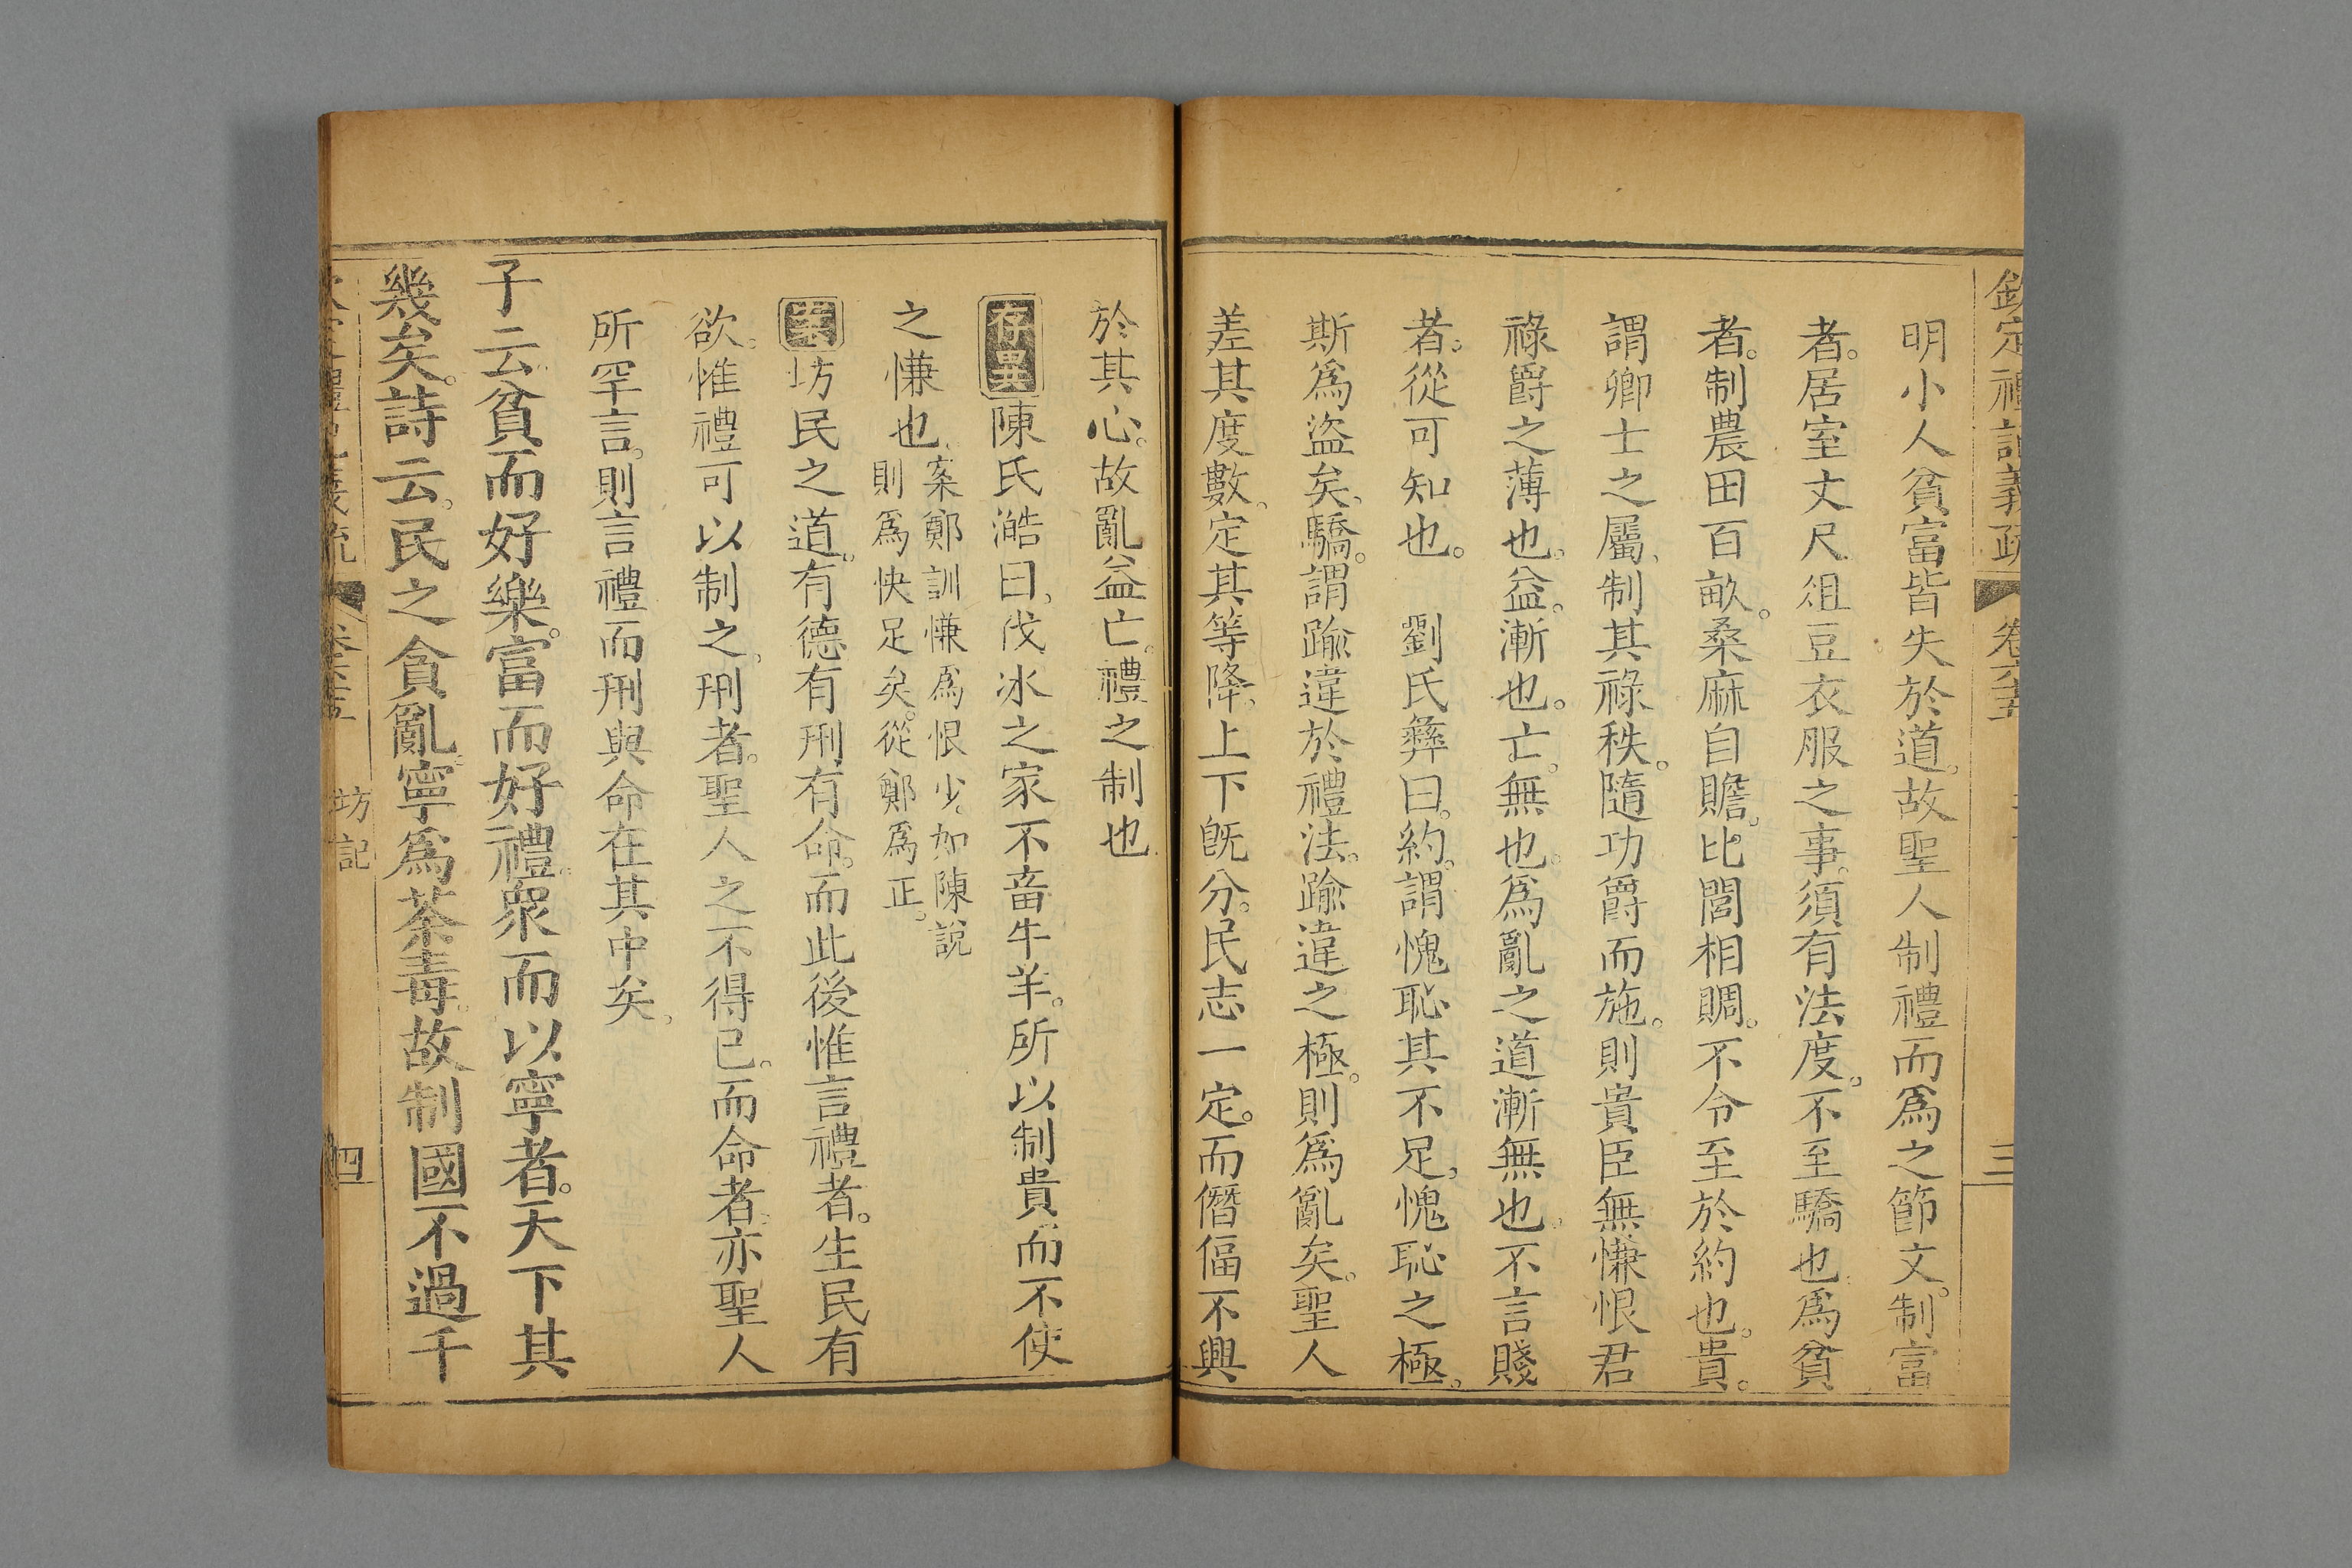 欽定禮記義疏 卷六十五 三
明小人貧富皆失於道。故聖人制禮而爲之節文。制富
者。居室丈尺俎豆衣服之事。須有法度。不至驕也。爲貧
者。制農田百畝。桑麻自贍。比閭相賙。不令至於約也。貴。
謂卿士之屬。制其祿秩。隨功爵而施。則貴臣無慊恨君
祿爵之薄也。益。漸也。亡。無也。爲亂之道漸無也。不言賤
者。從可知也。 劉氏彝曰。約。謂愧恥其不足。愧恥之極。
斯爲盜矣。驕。謂踰違於禮法。踰違之極。則爲亂矣。聖人
差其度數。定其等降。上下既分。民志一定。而僭偪不興
於其心。故亂益亡。禮之制也
存異 陳氏澔曰。伐冰之家不畜牛羊。所以制貴而不使
之慊也。
案鄭訓慊爲恨少。如陳說
則爲快足矣。從鄭爲正。
案 坊民之道。有德有刑有命。而此後惟言禮者。生民有
欲。惟禮可以制之。刑者。聖人之不得已。而命者。亦聖人
所罕言。則言禮而刑與命在其中矣。
子云貧而好樂。富而好禮。眾而以寧者。天下其
幾矣。詩云。民之貪亂。寧爲荼毒。故制國不過千
禮記義疏 卷六十五 坊記 四